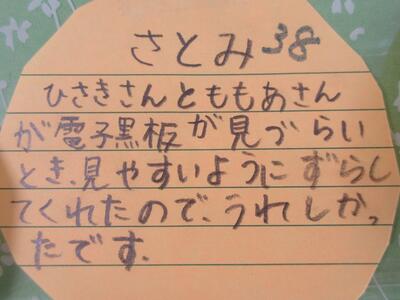 さとみ38
ひさきさんとももあさん
が電子黒板が見づらい
とき、見やすいようにずらし
てくれたので、うれしかっ
たです.